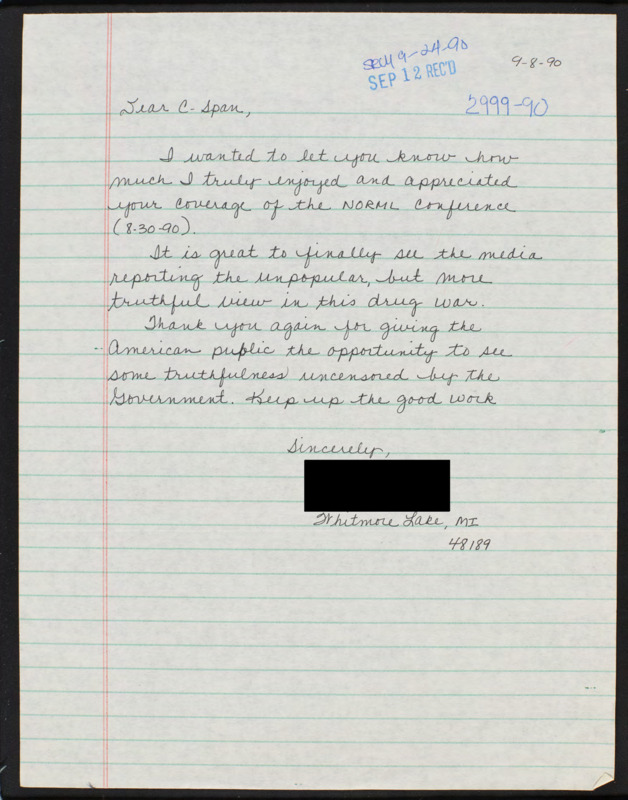 9-24-90
SEP 12 REC'D
9-8-90
2999-90
Dear C-Span,
I wanted to let you know how
much I truly enjoyed and appreciated
your coverage of the NORML Conference
(8-30-90).
It is great to finally see the media
reporting the unpopular, but more
truthful view in this drug war.
Thank you again for giving the
American public the opportunity to see
some truthfulness uncensored by the
Government. Keep up the good work
Sincerely,
Whitmore Lake, MI
48189